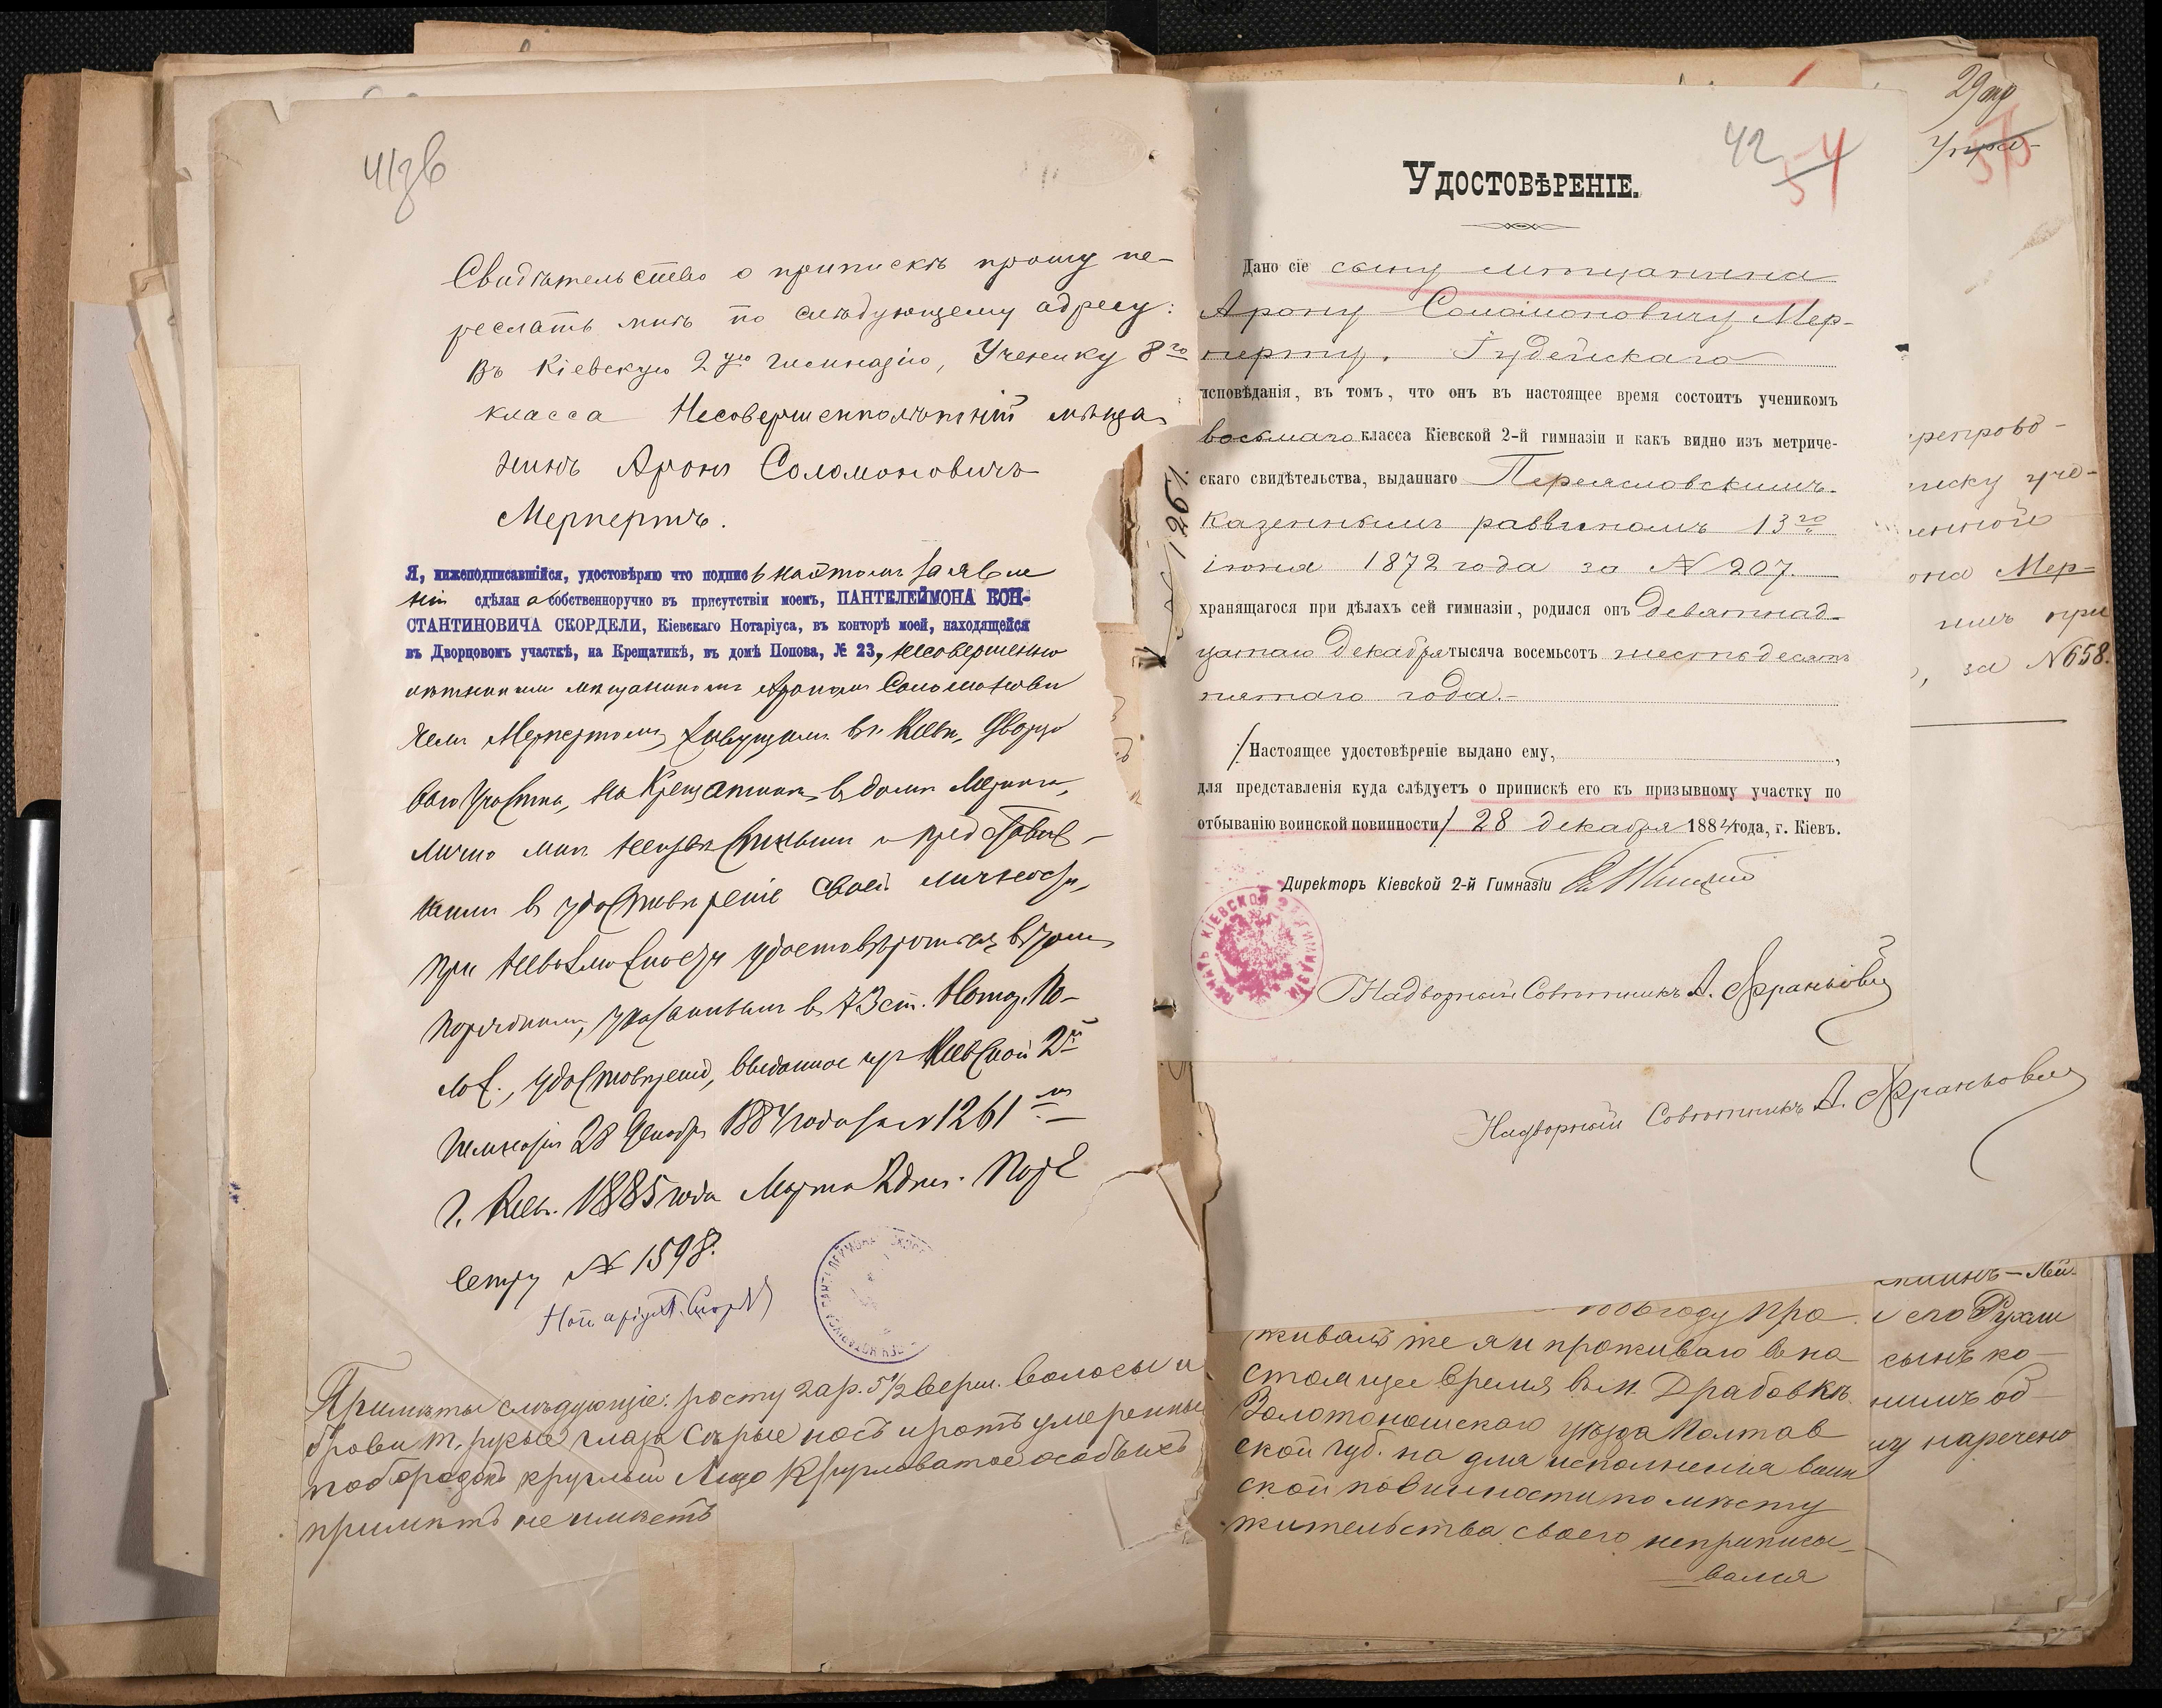 41 зв
Свидѣтельство о припискѣ прошу пе-
реслать мнѣ по слѣдующему адресу:
Въ Кіевскую 2ую гимназію, Ученику 8го
класса Несовершеннолѣтній мѣща
нинъ Аронъ Соломоновичъ
Мерпертъ.
Я, нижеподписавшійся, удостовѣряю что подпис ь на этомъ заявле
ніи сдѣлан а собственноручно въ присутствіи моемъ, ПАНТЕЛЕЙМОНА КОН-
СТАНТИНОВИЧА СКОРДЕЛИ, Кіевскаго Нотаріуса, въ конторѣ моей, находящейся
въ Дворцовомъ участкѣ, на Крещатикѣ, въ домѣ Попова, № 23, несовершенно
лѣтнимъ мѣщаниномъ Арономъ Соломонови
чемъ Мерпертомъ, живущимъ въ Кіевѣ, Дворцо
ваго участка, на Крещатикѣ, въ домѣ
лично мнѣ неизвѣстнымъ и представив-
шимъ въ удостовѣреніе своей личности,
при невозможности удостовѣриться въ томъ
порядкомъ, указаннымъ въ 73 ст. Нотар. По-
лож., удостовѣреніе, выданное изъ Кіевской 2й
гимназіи 28 Декабря 1884 года за № 1261 мъ
г. Кіевъ. 1885 года Марта 2 дня. По рее
стру № 1598.
Нотаріусъ П. Скордели
Примѣты слѣдующіе: росту 2 ар. 5½ верш. волосы и
брови т. русые глаза сѣрые носъ и ротъ умеренные
подбородокъ круглый лицо кругловатое особыхъ
примѣтъ не имѣетъ
42 54
УДОСТОВѢРЕНІЕ.
Дано сіе сыну мѣщанина
Арону Соломоновичу Мер-
перту, Іудейскаго
исповѣданія, въ томъ, что онъ въ настоящее время состоитъ ученикомъ
восьмаго класса Кіевской 2-й гимназіи и какъ видно изъ метриче-
скаго свидѣтельства, выданнаго Переясловскимъ
Казеннымъ раввиномъ 13го
іюня 1872 года за № 207.
хранящагося при дѣлахъ сей гимназіи, родился онъ девятнад-
цатаго Декабря тысяча восемьсотъ шестьдесятъ
пятаго года.
Настоящее удостовѣреніе выдано ему,
для представленія куда слѣдуетъ о припискѣ его къ призывному участку по
отбыванію воинской повинности 28 декабря 1884 года, г. Кіевъ.
Директоръ Кіевской 2-й Гимназіи
ПЕЧАТЬ КІЕВСКОЙ 2Й ГИМНАЗІИ
Надворный Совѣтникъ А.
№ 1261.
Надворный Совѣтникъ А.
году про
живалъ же я и проживаю въ на
стоящее время въ м. Драбовкѣ
Золотоношскаго уѣзда Полтав
ской губ. но для исполненія воин
ской повинности по мѣсту
жительства своего неприписы-
вался
29 апр
55
репрово-
иску уче-
она Мер-
при
за № 658.
его Рухли
сынъ ко-
нимъ об-
му наречено